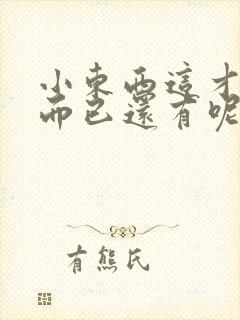 小東西這才
而已還有呢
有熊氏